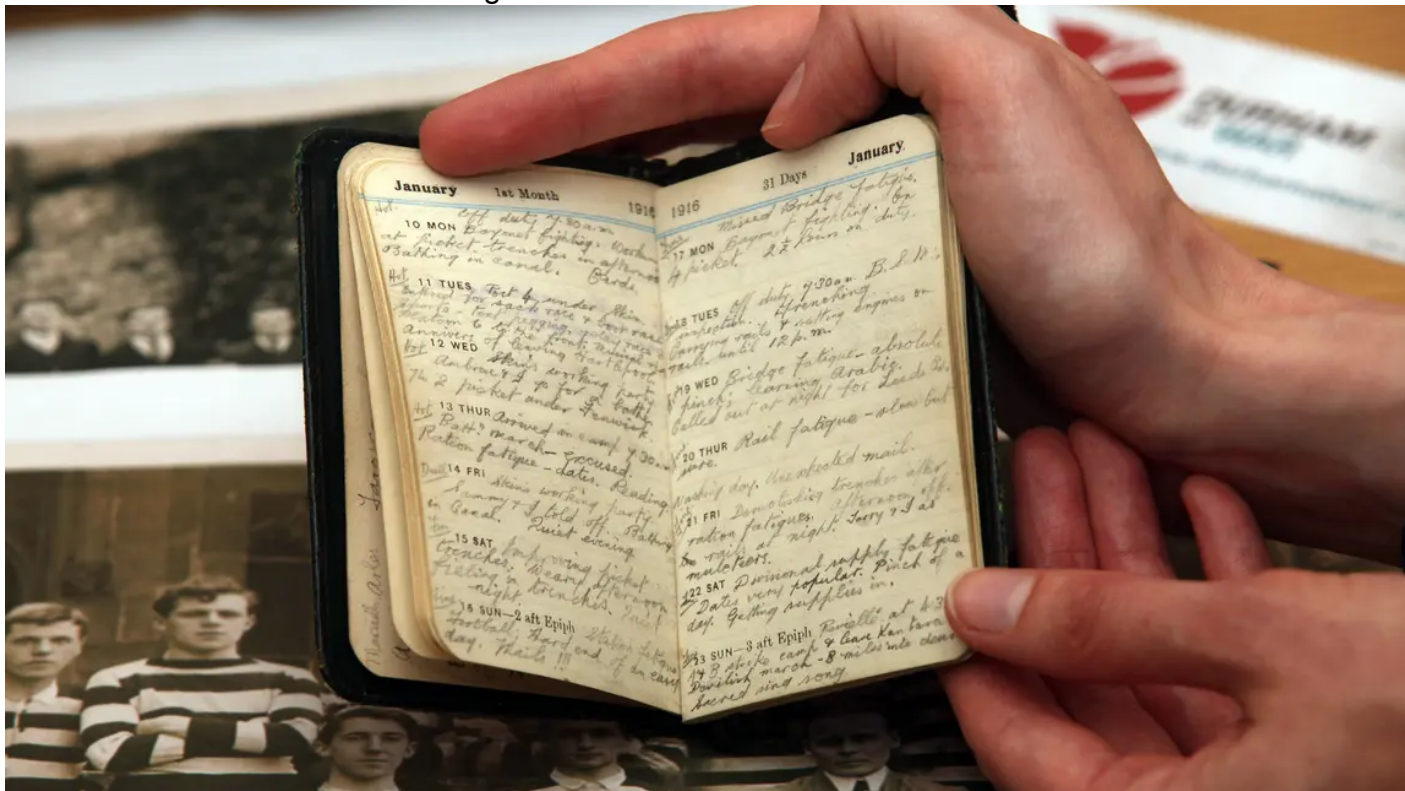 January 1st Month 1916
Hot. Off duty 7.30am
10 MON Bayonet fighting. Work
at picket trenches in afternoon
Bathing in canal. Cards.
Hot 11 TUES Feet under Skin
Entered for sack race & boot race
sports - tent pegging, relay race
6 to the front
Annivers of leaving Hartlepool
Hot 12 WED Skins working party
Ambrose & I go for a bathe
No 2 picket under Fenwick.
Hot 13 THUR Arrived in camp 7.30am
Batt? march - excused.
Ration fatigue - dates. Reading.
Dull 14 FRI Skins working party
Sammy & I told off. Bathing
in Canal. Quiet evening
15 SAT Improving picket
trenches. Weary afternoon
feeling in trenches. Quiet
night
16 SUN—2 aft Epiph Station fatigue
Football. Hard end of an easy
day. Mails !!!
1916 31 Days January
Missed Bridge fatigue.
17 MON Bayonet fighting. On
4 picket. 2½ hours on duty.
18 TUES Off duty 7.30am. B.S.M's
inspection. Trenching.
Carrying rails & setting engines on
rails until 12 p.m.
19 WED Bridge fatigue - absolute
pinch; Learning Arabic.
Called out at night for Leeds Co.
20 THUR Rail fatigue - slow but
sure.
Washing day. Unexpected mail.
21 FRI Demolishing trenches after
ration fatigues. Afternoon off.
On rails at night. Torry & I as
muleteers.
22 SAT Divisional supply fatigue
Dates very popular. Pinch of a
day. Getting supplies in.
23 SUN—3 aft Epiph Reveille at 4.3
A & B strike camp & leave Kantara
Devilish march - 8 miles into desert
Sacred sing song.
DURHAM
AT WAR